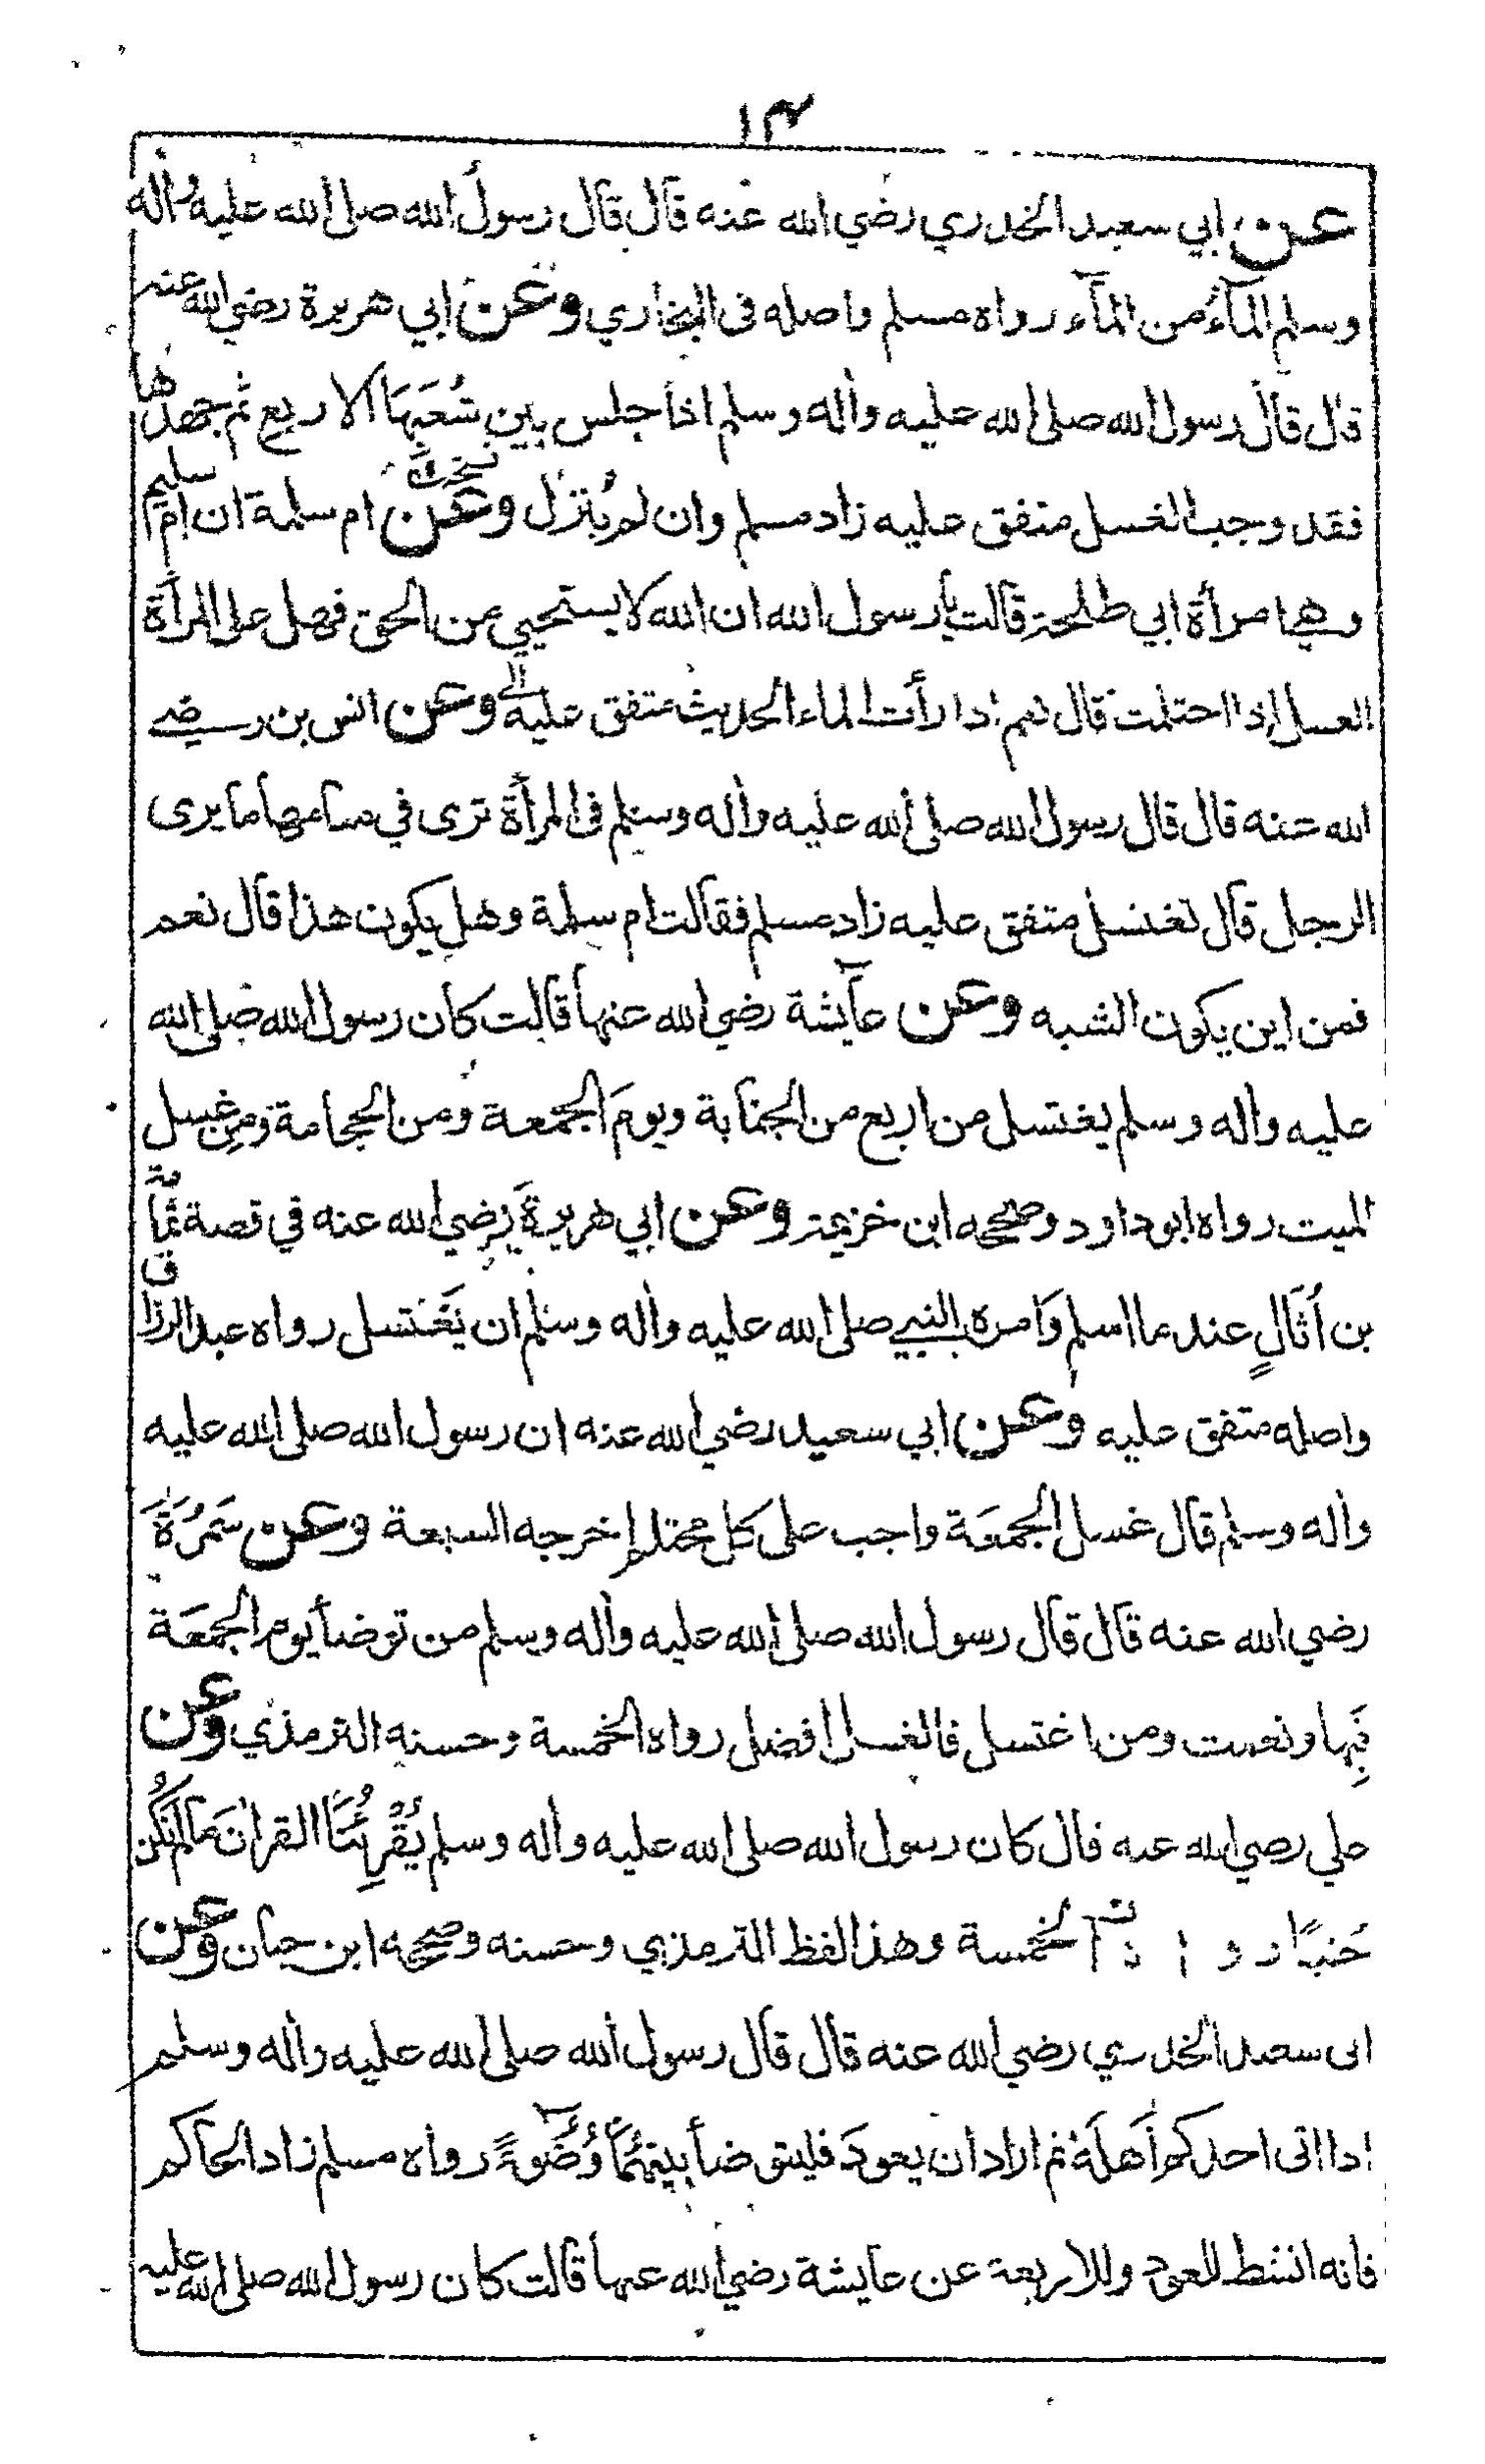 ١٣
عن ابي سعيد الخدري رضي الله عنه قال قال رسول الله صلى الله عليه واٰله
وسلم المآء من المآء رواه مسلم واصله في البخاري وعن ابي هريرة رضي الله عنه
قال قال رسول الله صلى الله عليه واٰله وسلم اذا جلس بين شُعَبِهَا الاربع ثم جهدها
فقد وجب الغسل متفق عليه زاد مسلم وان لم يُنزل وعن ام سلمة ان ام سليم
وهي امرأة ابي طلحة قالت يا رسول الله ان الله لا يستحيي من الحق فهل على المرأة
الغسل اذا احتلمت قال نعم اذا رأت الماء الحديث متفق عليه وعن انس بن رضي
الله عنه قال قال رسول الله صلى الله عليه واٰله وسلم في المرأة ترى في منامها ما يرى
الرجل قال تغتسل متفق عليه زاد مسلم فقالت ام سلمة وهل يكون هذا قال نعم
فمن اين يكون الشبه وعن عآيشة رضي الله عنها قالت كان رسول الله صلى الله
عليه واٰله وسلم يغتسل من اربع من الجنابة ويومَ الجمعة ومن الحجامة ومِن غسل
الميت رواه ابوداود وصححه ابن خزيمة وعن ابي هريرة رضي الله عنه في قصة ثمامة
بن اُثَالٍ عند ما اسلم وَامره النبي صلى الله عليه واٰله وسلم ان يَغتسل رواه عبد الرزاق
واصله متفق عليه وعن ابي سعيد رضي الله عنه ان رسول الله صلى الله عليه
واٰله وسلم قال غسل الجمعَة واجب على كل محتلم اخرجه السبعة وعن سَمُرَةَ
رضي الله عنه قال قال رسول الله صلى الله عليه واٰله وسلم من توضأ يوم الجمعَة
فَبِها ونعمت ومن اغتسل فالغسل افضل رواه الخمسة وحسنه الترمذي وعن
علي رضي الله عنه قال كان رسول الله صلى الله عليه واٰله وسلم يُقْرِئُنَا القراٰن مَا لم يَكُن
جُنبًا رواه الخمسة وهذا لفظ الترمذي وحسنه وصححه ابن حبان وعن
ابي سعيد الخدري رضي الله عنه قال قال رسول الله صلى الله عليه واٰله وسلم
اذا اتى احدكم اَهلَهٗ ثم اراد ان يعودَ فليتوضأ بينهُمَا وُضُوءً رواه مسلم زاد الحاكم
فانه انشط للعود وللاربعة عن عايشة رضي الله عنها قالت كان رسول الله صلى الله عليه